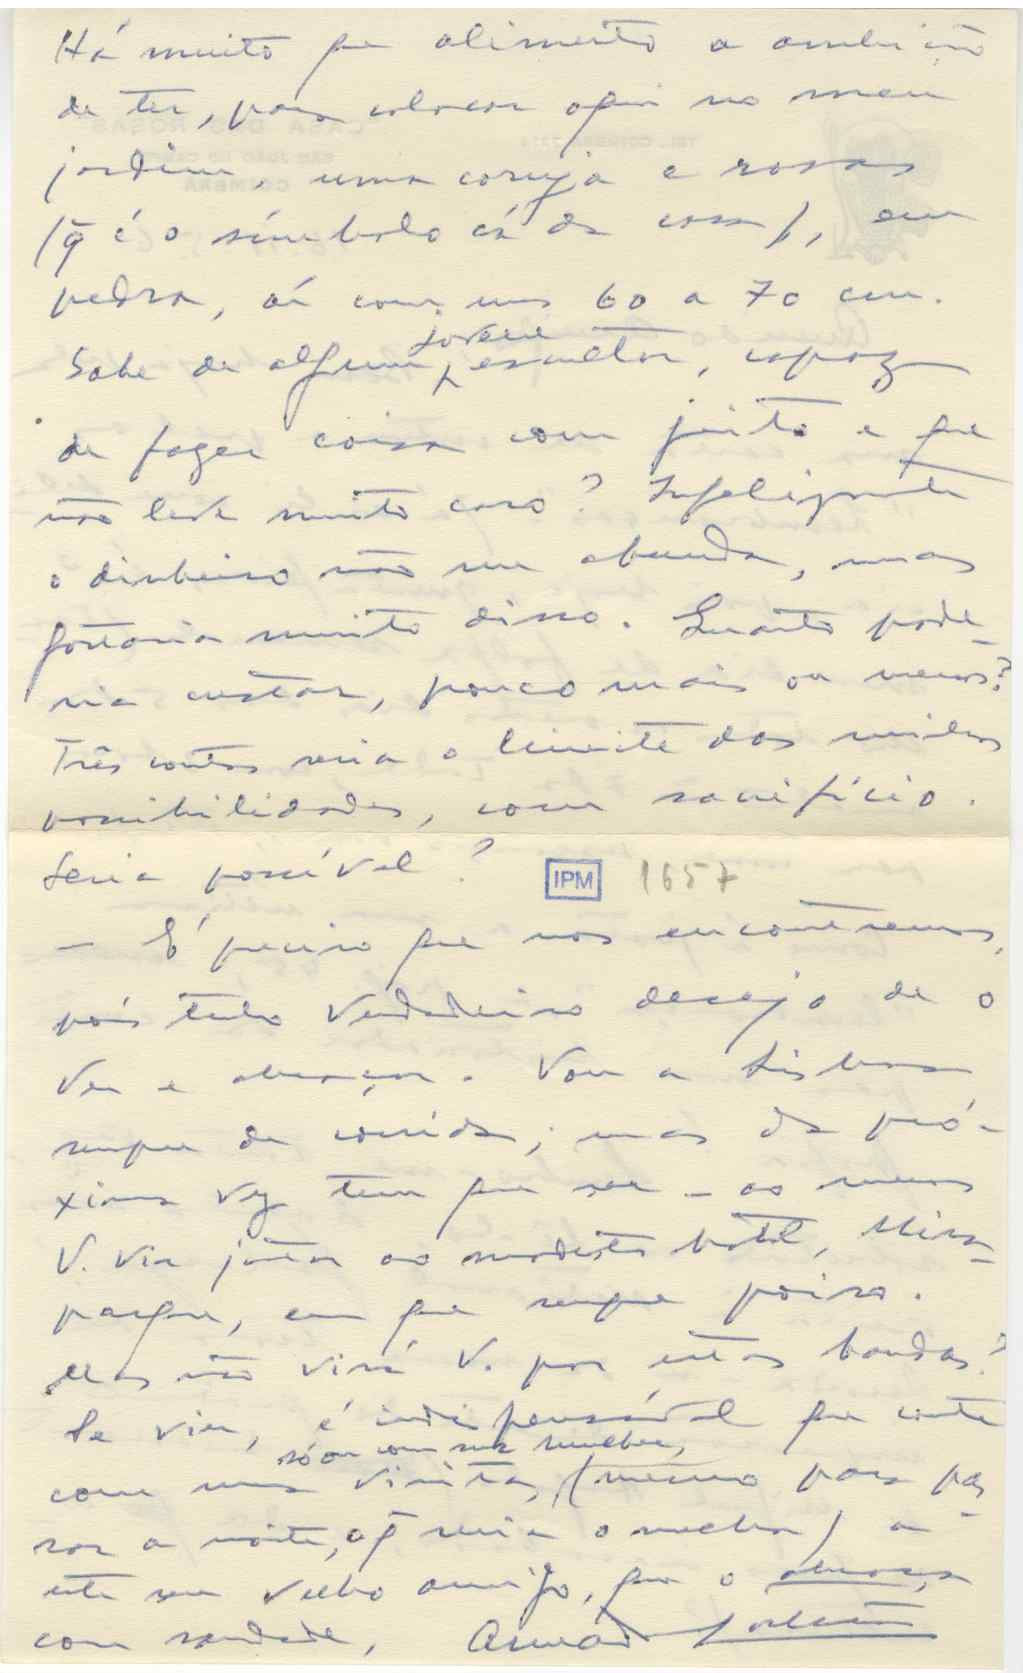 Há muito que alimento a ambição
de ter, para colocar aqui no meu
jardim, uma coruja e rosas
(q̃ é o símbolo cá da casa), em
pedra, aí com uns 60 a 70 cm.
Sabe de algum jovem escultor, capaz
de fazer coisa com jeito e que
não leve muito caro? Infelizmente
o dinheiro não me abunda, mas
gostaria muito disso. Quanto pode-
ria custar, pouco mais ou menos?
Três contos seria o limite das minhas
possibilidades, com sacrifício.
Seria possível?
IPM 1657
— É preciso que nos encontremos,
pois tenho verdadeiro desejo de o
ver e abraçar. Vou a Lisboa
sempre de corrida; mas da pró-
xima vez tem que ser — ao menos
V. vir jantar ao modesto hotel, Mira-
parque, em que sempre poiso.
Mas não virá V. por estas bandas?
Se vier, é indispensável que conte
só ou com sua mulher,
com uma visita, (mesmo para pas-
sar a noite, o q̃ seria o melhor) a
este seu velho amigo, que o abraça,
com saudade,